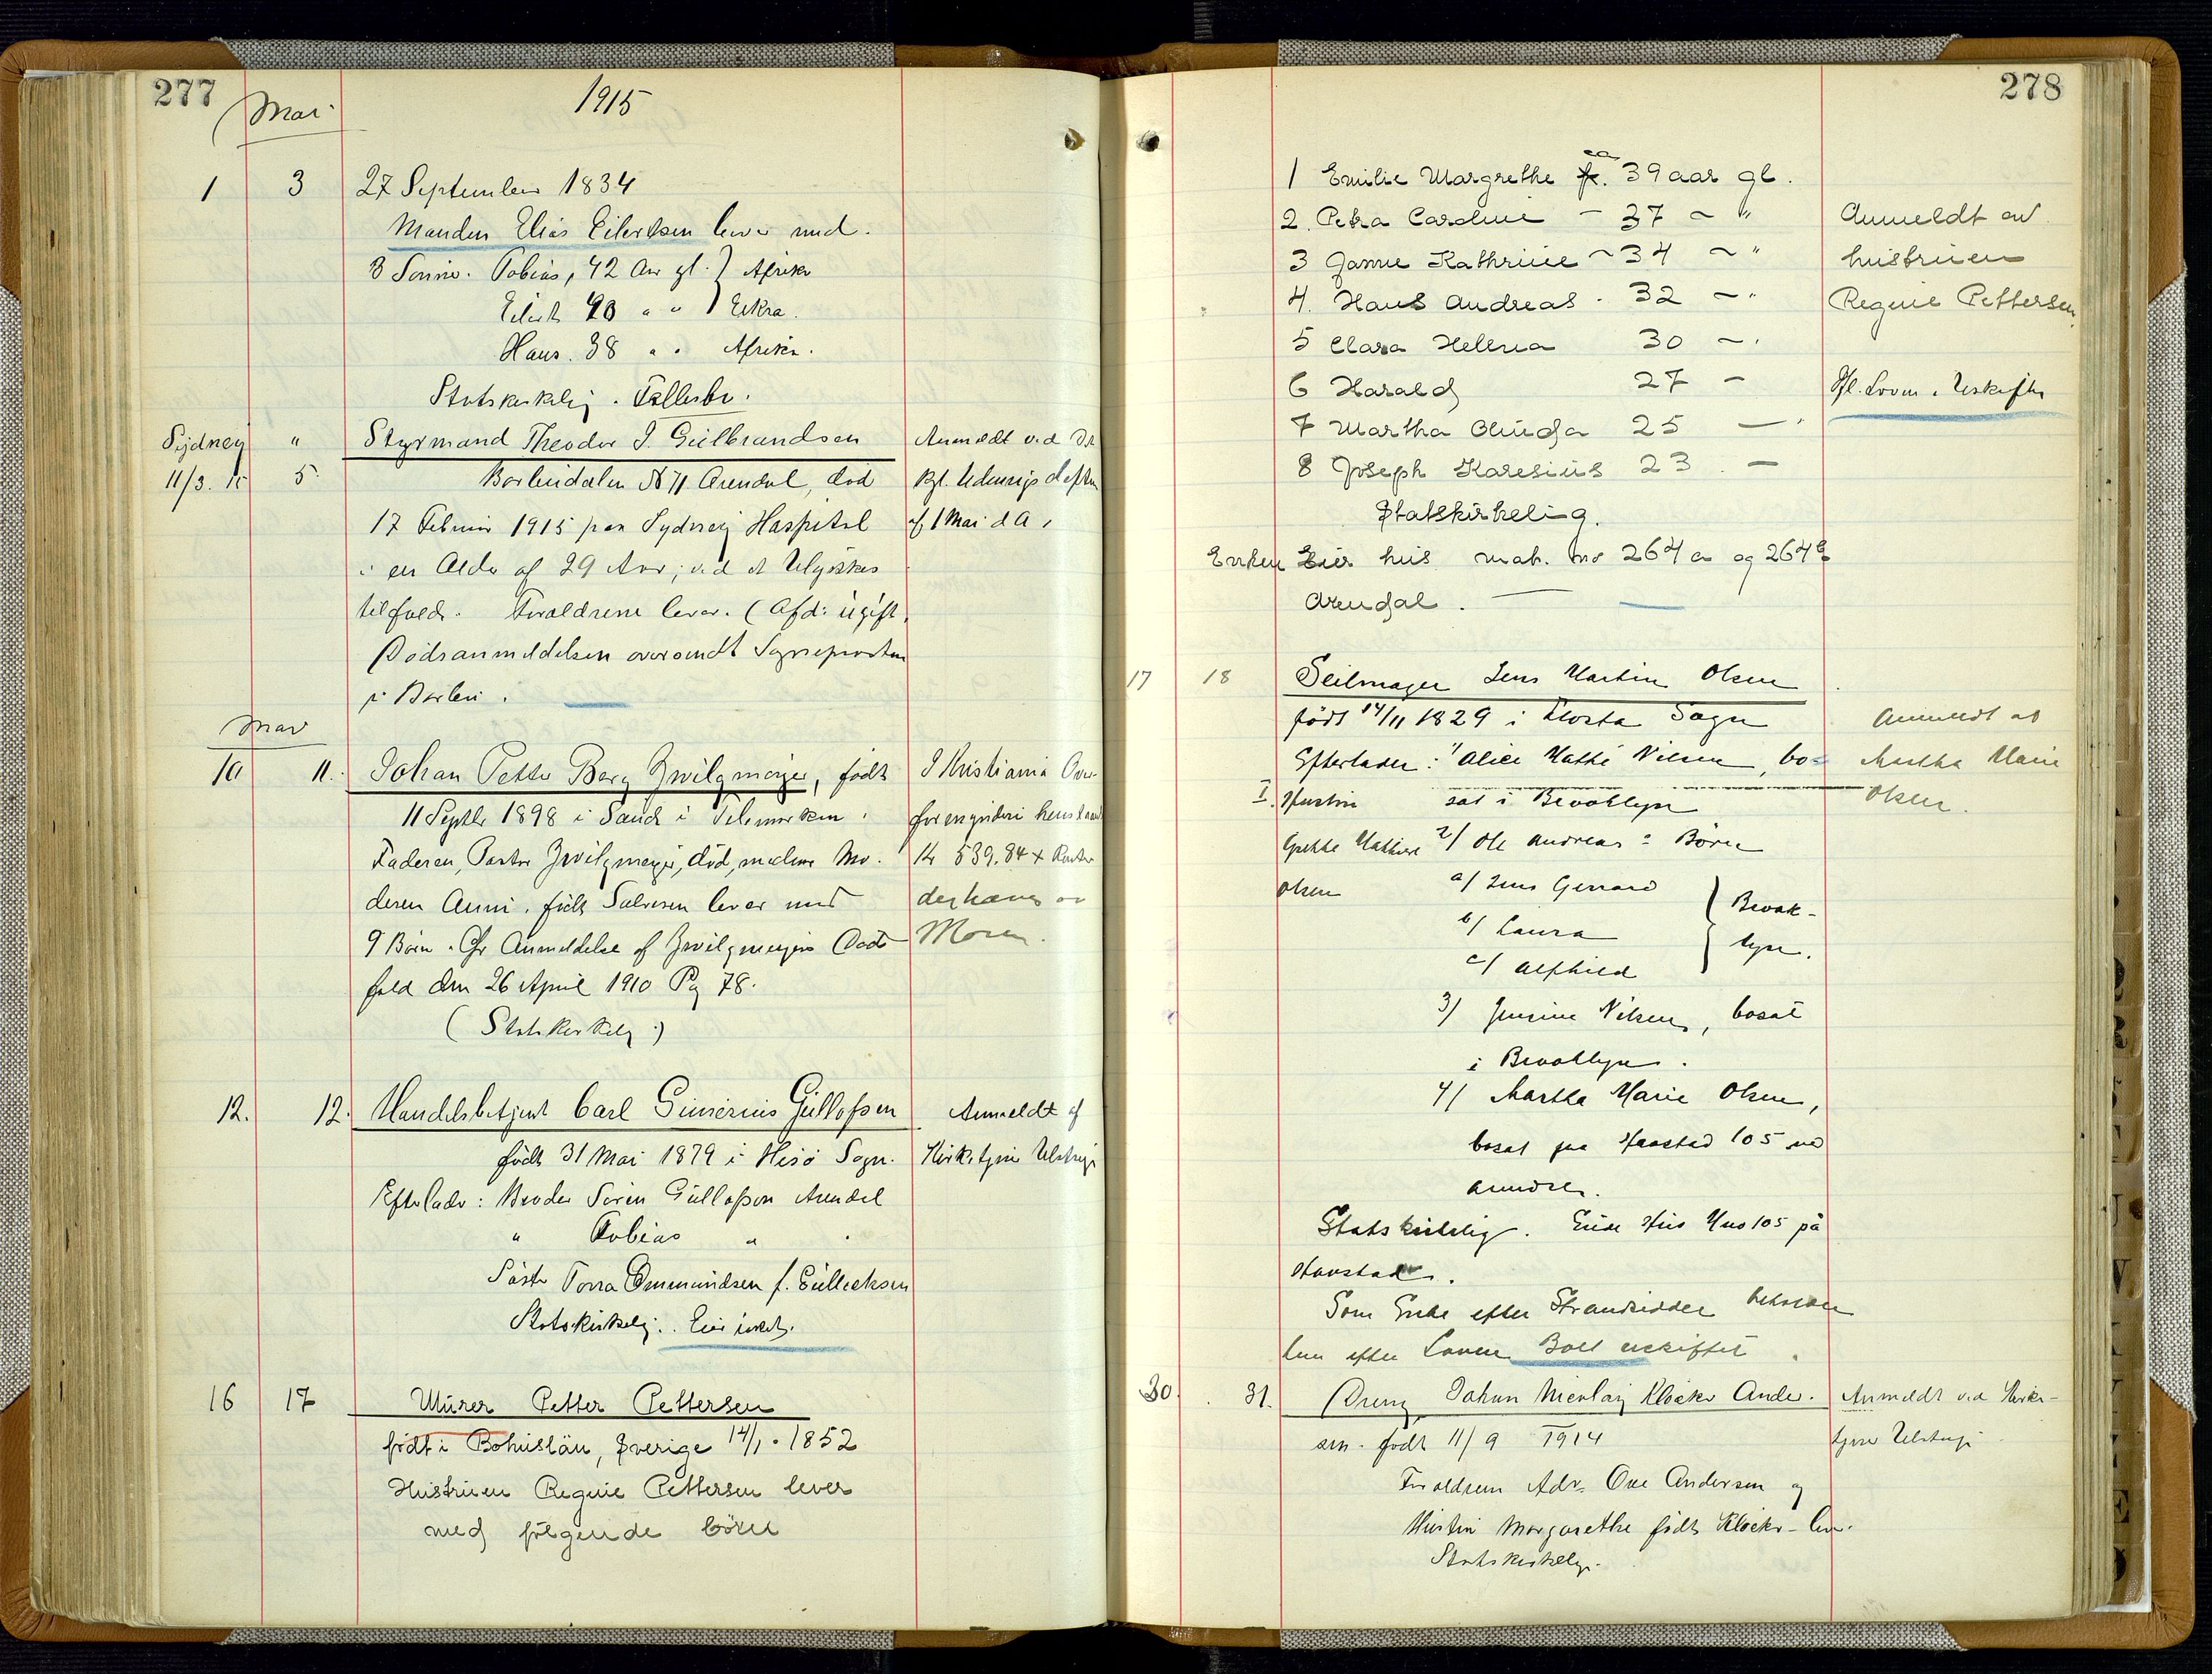 277
Mai
1915
1 3 27 September 1834
Manden Elias Eilertsen lever med
3 Sønner. Tobias, 42 Aar gl. } Afrika
Eilert 40 " " }
Hans. 38 " " Afrika.
Statskirkelig. Fællesbo.
Sydney " Styrmand Theodor J. Gulbrandsen
11/3. 15 5. Barbudalen No 71. Arendal, død
17 Februar 1915 paa Sydney Hospital
i en Alder af 29 Aar; ved et Ulykkes
tilfælde. Forældrene lever. (Afd: ugift.
Dødsanmeldelsen oversendt Sogneprosten
i Barbu.
Anmeldt ved Det
Kgl. Udenrigsdeptm
af 1 Mai d A.
Mai
10 11. Johan Petter Berg Zwilgmeyer, født
11 Septbr 1898 i Sauds i Telemarken.
Faderen, Pastor Zwilgmeyer, død, medens Mo-
deren Anni, født Salvesen lever med
9 Børn. Cfr Anmeldelse af Zwilgmeyers Døds
fald den 26 April 1910 Pg 78.
(Statskirkelig.)
I Kristiania Over-
formynderi henstaar
Kr 539.84 + Renter
der hæves av
Moren.
12. 12. Handelsbetjent Carl Gullofsen
født 31 Mai 1879 i Hisø Sogn.
Efterlader: Broder Søren Gullofsen Arendal
" Tobias "
Søster Tora Ommundsen f. Gullicksen
Statskirkelig. Eier intet.
Anmeldt af
Kirketjener Ulstrup
16 17 Murer Petter Pettersen
født i Bohuslän, Sverige 14/1. 1852
Hustruen Regine Pettersen lever
med følgende børn
278
1 Emilie Margrethe ca 39 aar gl.
2. Petra Caroline - 37 - "
3 Janne Kathrine - 34 - "
4. Hans Andreas - 32 - "
5 Clara Helena 30 -
6 Harald 27 -
7 Martha Olinda 25 -
8 Joseph Karesius 23 -
Statskirkelig.
Enken Eier hus mat. no 264 a og 264
Arendal.
Anmeldt av
hustruen
Regine Pettersen
Ifl. Loven. Uskiftet
17 18 Seilmager Jens Martin Olsen
født 14/11 1829 i Flosta Sogn
Efterlader: 1/ Alice Mathi Nilsen, bo-
I. Hustru sat i Brooklyn
Grethe Mathisen 2/ Ole Andreas : Børn
Olsen a/ Jens Gerrard
b/ Laura
c/ Alfhild
} Brook-
lyn.
3) Jensine Nilsen, bosat
i Brooklyn.
4/ Martha Marie Olsen,
bosat paa Havstad 105 ved
Arendal.
Statskirkelig. Eide Hus Mno 105 på
Havstad.
Som Enke efter Strandsidder beholder
hun efter Loven Boet uskiftet
Anmeldt af
Martha Marie
Olsen.
30. 31. Dreng Johan Nicolay Klocker Ander-
sen. født 11/9 1914
Forældrene Adv. Ove Andersen og
Hustru Margarethe født Klocker - lev.
Statskirkelig.
Anmeldt ved Kirke-
tjener Ulstrup